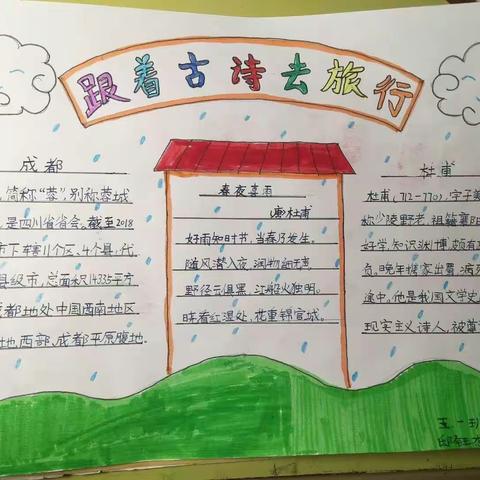 跟着古诗去旅行
成都
简称“蓉”,别称蓉城
是四川省省会。截至2018
市下辖11个区、4个县,代
县级市,总面积14335平方
成都地处中国西南地区
地西部、成都平原腹地.
春夜喜雨
(唐)杜甫
好雨知时节,当春乃发生。
随风潜入夜,润物细无声。
野径云俱黑,江船火独明。
晓看红湿处,花重锦官城。
杜甫
杜甫,(712-770),字子美
少陵野老,祖籍襄阳
好学,知识渊博,颇有政
负,晚年携家出蜀,病死
途中,他是我国文学史
现实主义诗人,被尊
五一班